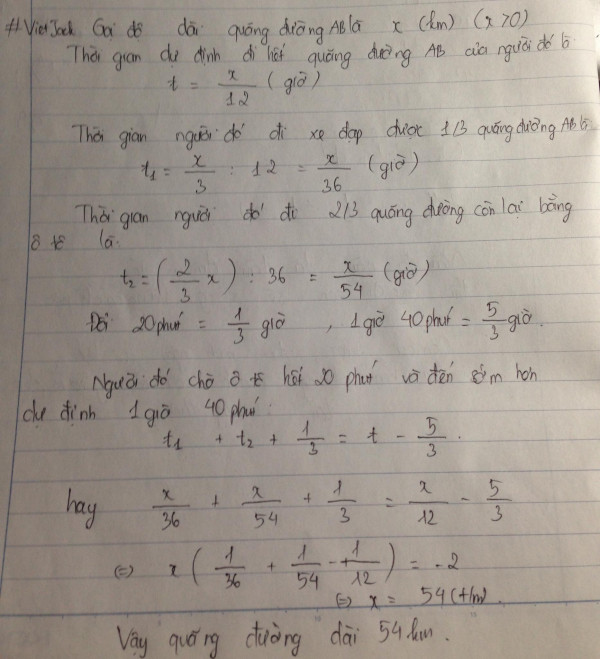 # VietJack Gọi độ dài quãng đường AB là x (km) (x>0)
Thời gian dự định đi hết quãng đường AB của người đó là
t = x/12 (giờ)
Thời gian người đó đi xe đạp được 1/3 quãng đường AB là
t₁ = x/3 : 12 = x/36 (giờ)
Thời gian người đó đi 2/3 quãng đường còn lại bằng
ô tô là
t₂ = (2/3 x) : 36 = x/54 (giờ)
Đổi 20 phút = 1/3 giờ , 1 giờ 40 phút = 5/3 giờ.
Người đó chờ ô tô hết 20 phút và đến sớm hơn
dự định 1 giờ 40 phút:
t₁ + t₂ + 1/3 = t - 5/3.
hay x/36 + x/54 + 1/3 = x/12 - 5/3
(=) x (1/36 + 1/54 - 1/12) = -2
(=) x = 54 (t/m).
Vậy quãng đường dài 54 km.